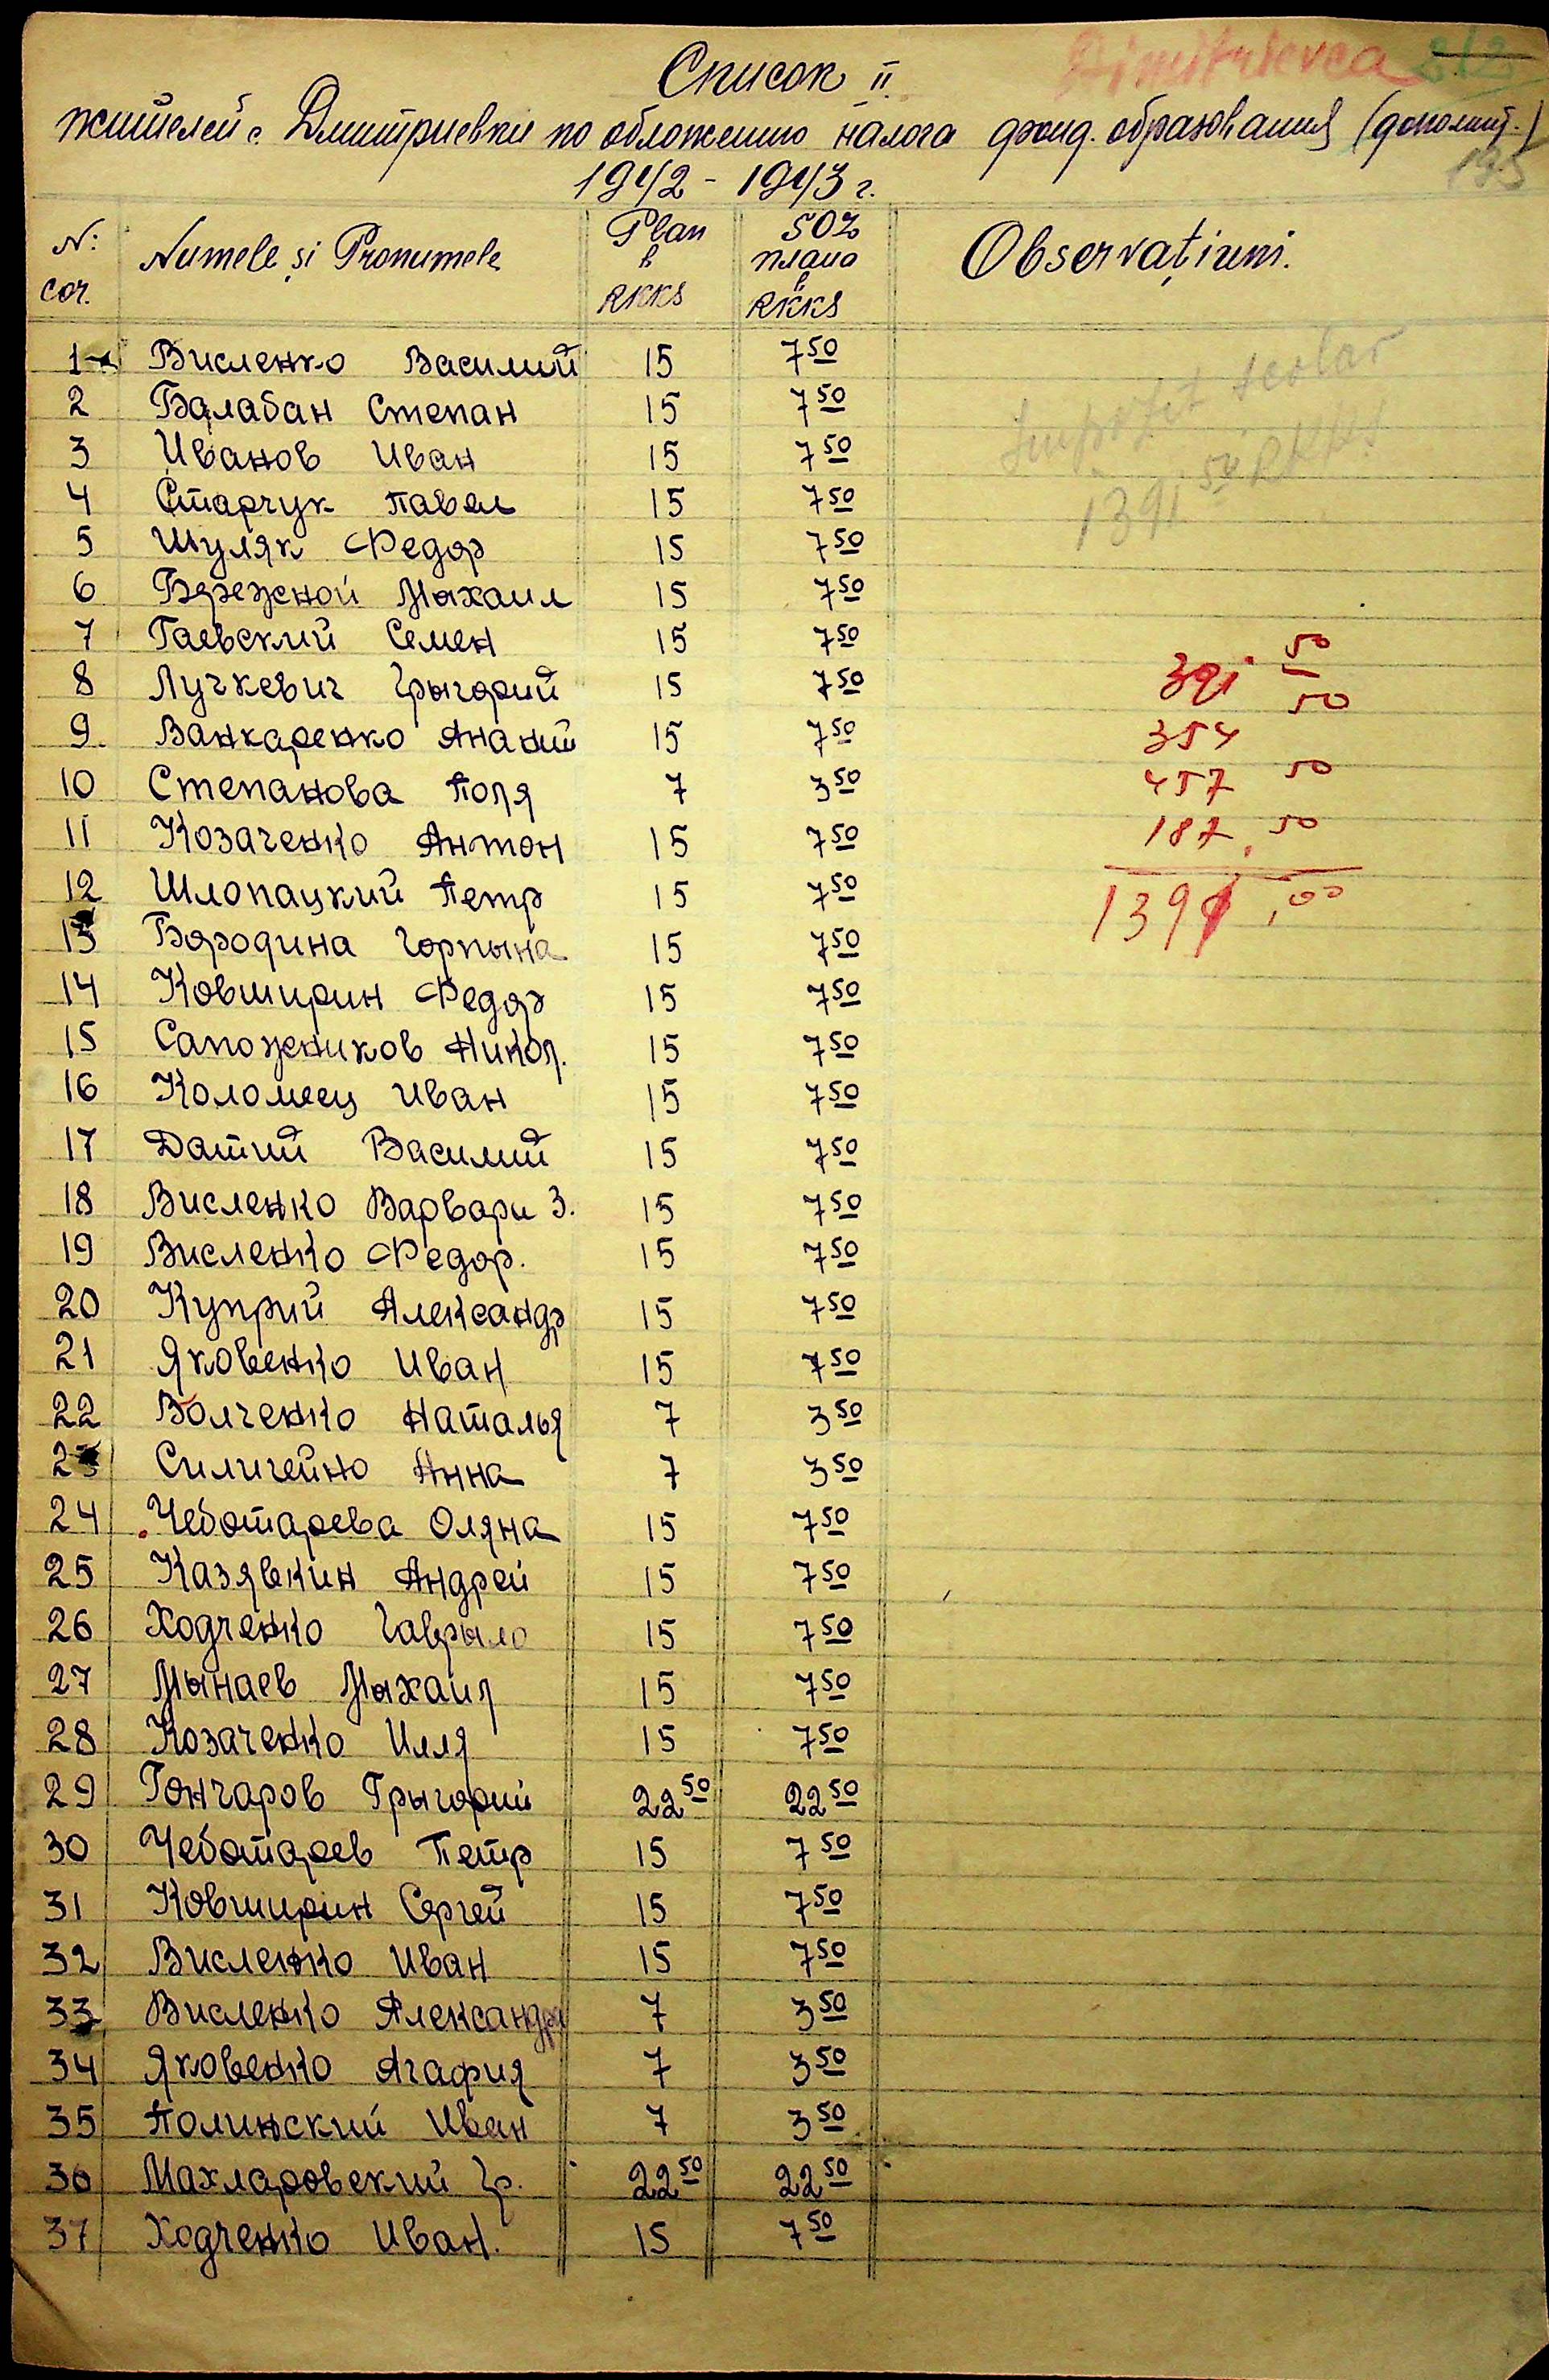 Dimitrievca
Список II
жителей с. Дмитриевки по обложению налога фонд. образования (дополнит.)
195
1942 - 1943 г.
N: cor. Numele și Pronumele Plan в RKKS 50% плана в RKKS Observațiuni.
1 Висленко Василий 15 7 50
2 Балабан Степан 15 7 50
3 Иванов Иван 15 7 50
4 Старчук Павел 15 7 50
5 Шуляк Федор 15 7 50
6 Бережной Мыхаил 15 7 50
7 Гаевский Семен 15 7 50
8 Лучкевич Грыгорий 15 7 50
9. Ванкаренко Ананий 15 7 50
10 Степанова Поля 7 3 50
11 Козаченко Антон 15 7 50
12 Шлопацкий Петр 15 7 50
13 Бородина Горпына 15 7 50
14 Ковширин Федор 15 7 50
15 Сапожников Никол. 15 7 50
16 Коломеец Иван 15 7 50
17 Датий Василий 15 7 50
18 Висленко Варвари З. 15 7 50
19 Висленко Федор. 15 7 50
20 Куприй Александр 15 7 50
21 Яковенко Иван 15 7 50
22 Волченко Наталья 7 3 50
23 Силичейно Анна 7 3 50
24 Чеботарева Оляна 15 7 50
25 Казявкин Андрей 15 7 50
26 Ходченко Гаврыло 15 7 50
27 Мынаев Мыхаил 15 7 50
28 Козаченко Илля 15 7 50
29 Гончаров Грыгорий 22 50 22 50
30 Чеботарев Петр 15 7 50
31 Ковширин Сергей 15 7 50
32 Висленко Иван 15 7 50
33 Висленко Александра 7 3 50
34 Яковенко Агафия 7 3 50
35 Полинский Иван 7 3 50
36 Махларовский Гр. 22 50 22 50
37 Ходченко Иван. 15 7 50
Impozit scolar
1391 50 RKKS
391 50
354 50
457 50
187. 50
1391,00